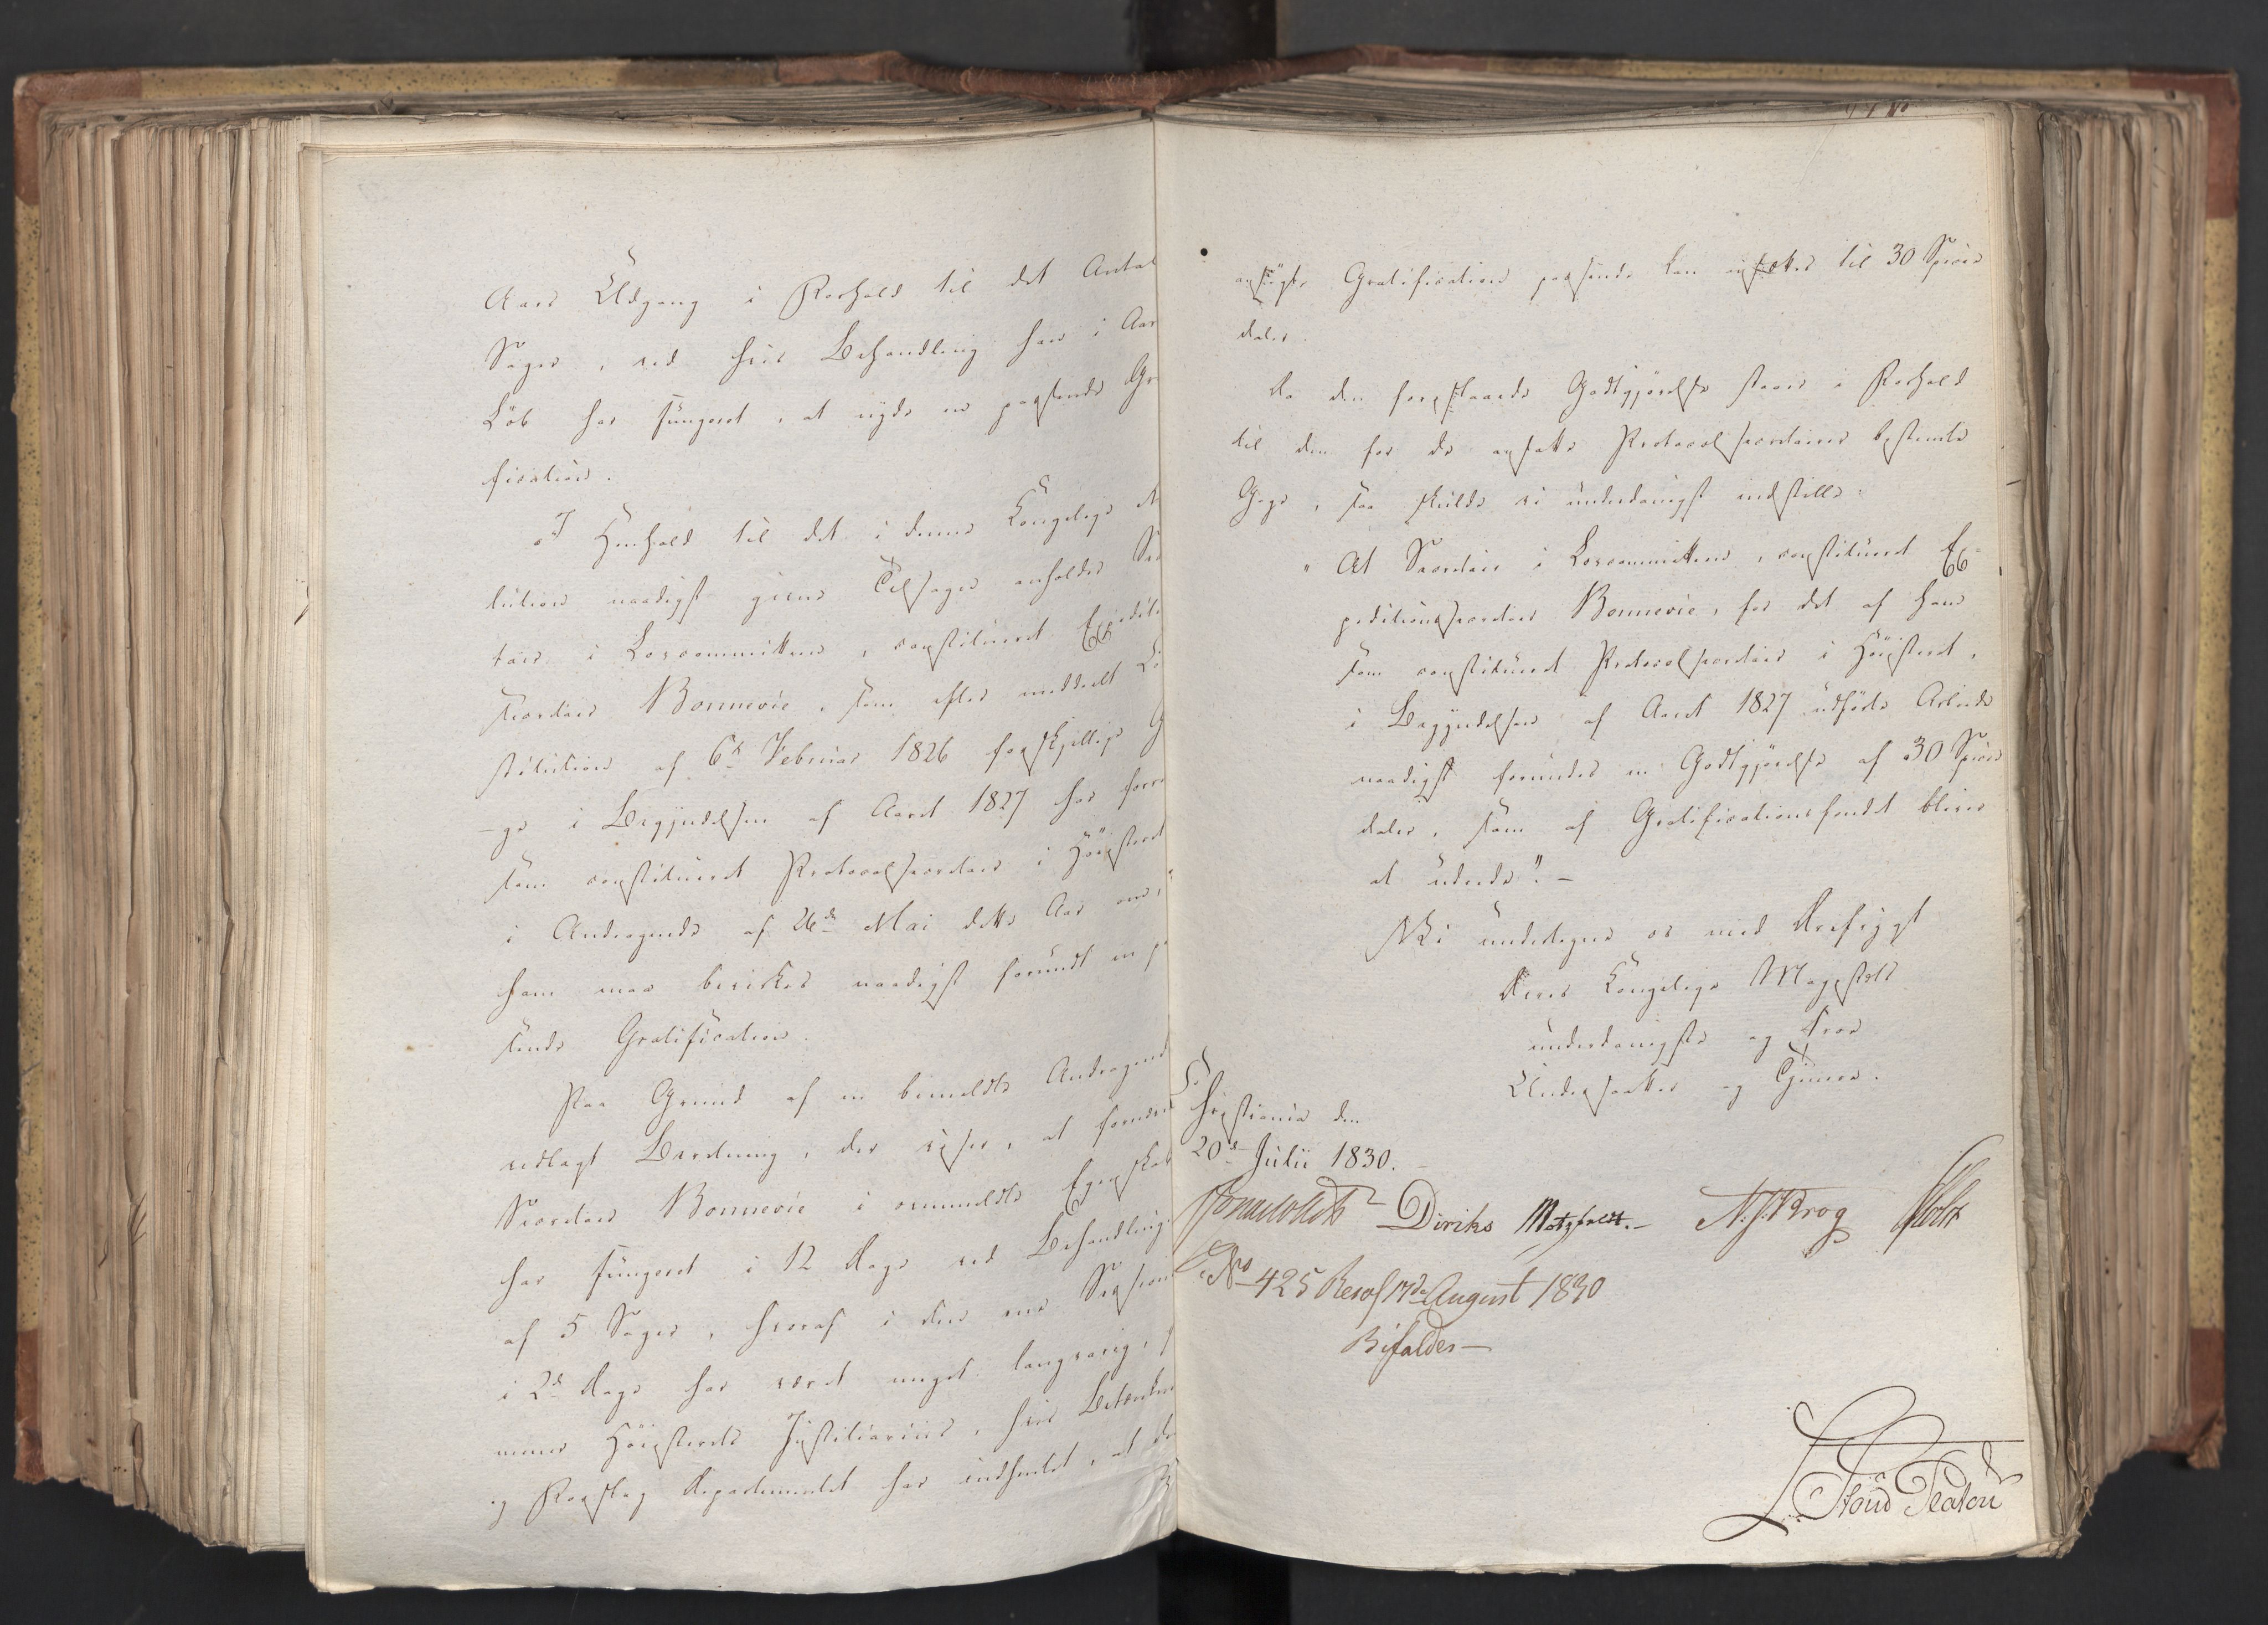 Aars Udgang i Forhold til det Antal
Sager, ved hvis Behandling han i Aar
Löb har fungeret, at nyde en passende Gr
fication.
I Henhold til det i denne Kongelige
lution naadigst givne Tilsagn anholder Se
tair i Lovcommitteen, constitueret Expedit
secretair Bonnevie, som efter meddeelt Co
stitution af 6d Februar 1826 forskjellige G
-ge i Begyndelsen af Aaret 1827 har
som constitueret Protocolsecretair i Höiesteret
i Andragende af 26d Mai dette Aar om,
ham maa bevirkes naadigst forundt en
sende Gratification.
Paa Grund af en bemeldte Andragende
vedlagt Beretning, der viser, at
Secretair Bonnevie i ommeldte Egenskab
har fungeret i 12 Dage ved Behandling
af 5 Sager, hvoraf i den ene Session
i 2de Dage har været meget langvarig,
mener Höiesterets Justitiarius, hvis Betænkn
og Forslag Departementet har indhentet, at de
ansögte Gratification passende kan ansættes til 30 Specie
daler.
Da den foreslaaede Godtgjörelse staaer i Forhold
til den for de ansatte Protocolsecretairer bestemte
Gage, saa skulde vi underdanigst indstille:
"At Secretair i Lovcommitteen, constitueret Ex-
peditionssecretair Bonnevie, for det af ham
som constitueret Protocolsecretair i Höiesteret,
i Begyndelsen af Aaret 1827 udförte Arbeide
naadigst forundes en Godtgjörelse af 30 Specie
daler, som af Gratificationsfondet bliver
at udrede". -
Vi undertegne os med Ærefrygt
Deres Kongelige Majestæts
underdanigste og troe
Undersaatter og Tjenere.
Christiania den
20d Julii 1830.
Diriks Motzfeldt. - N. J. Krog Holst
No 425 Resol 17de August 1830
Bifaldes -
Due